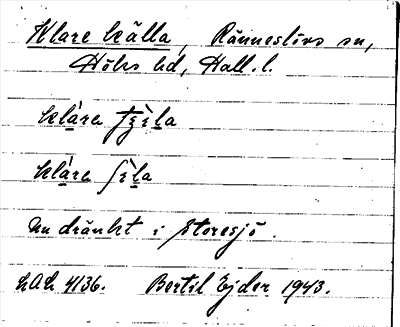 Klare källa, Ränneslövs sn,
Höks hd, Hall. l.
klàra tʃìla
klàra ʃìla
nu dränkt i Storesjö.
LAL 4136. Bertil Ejder 1943.